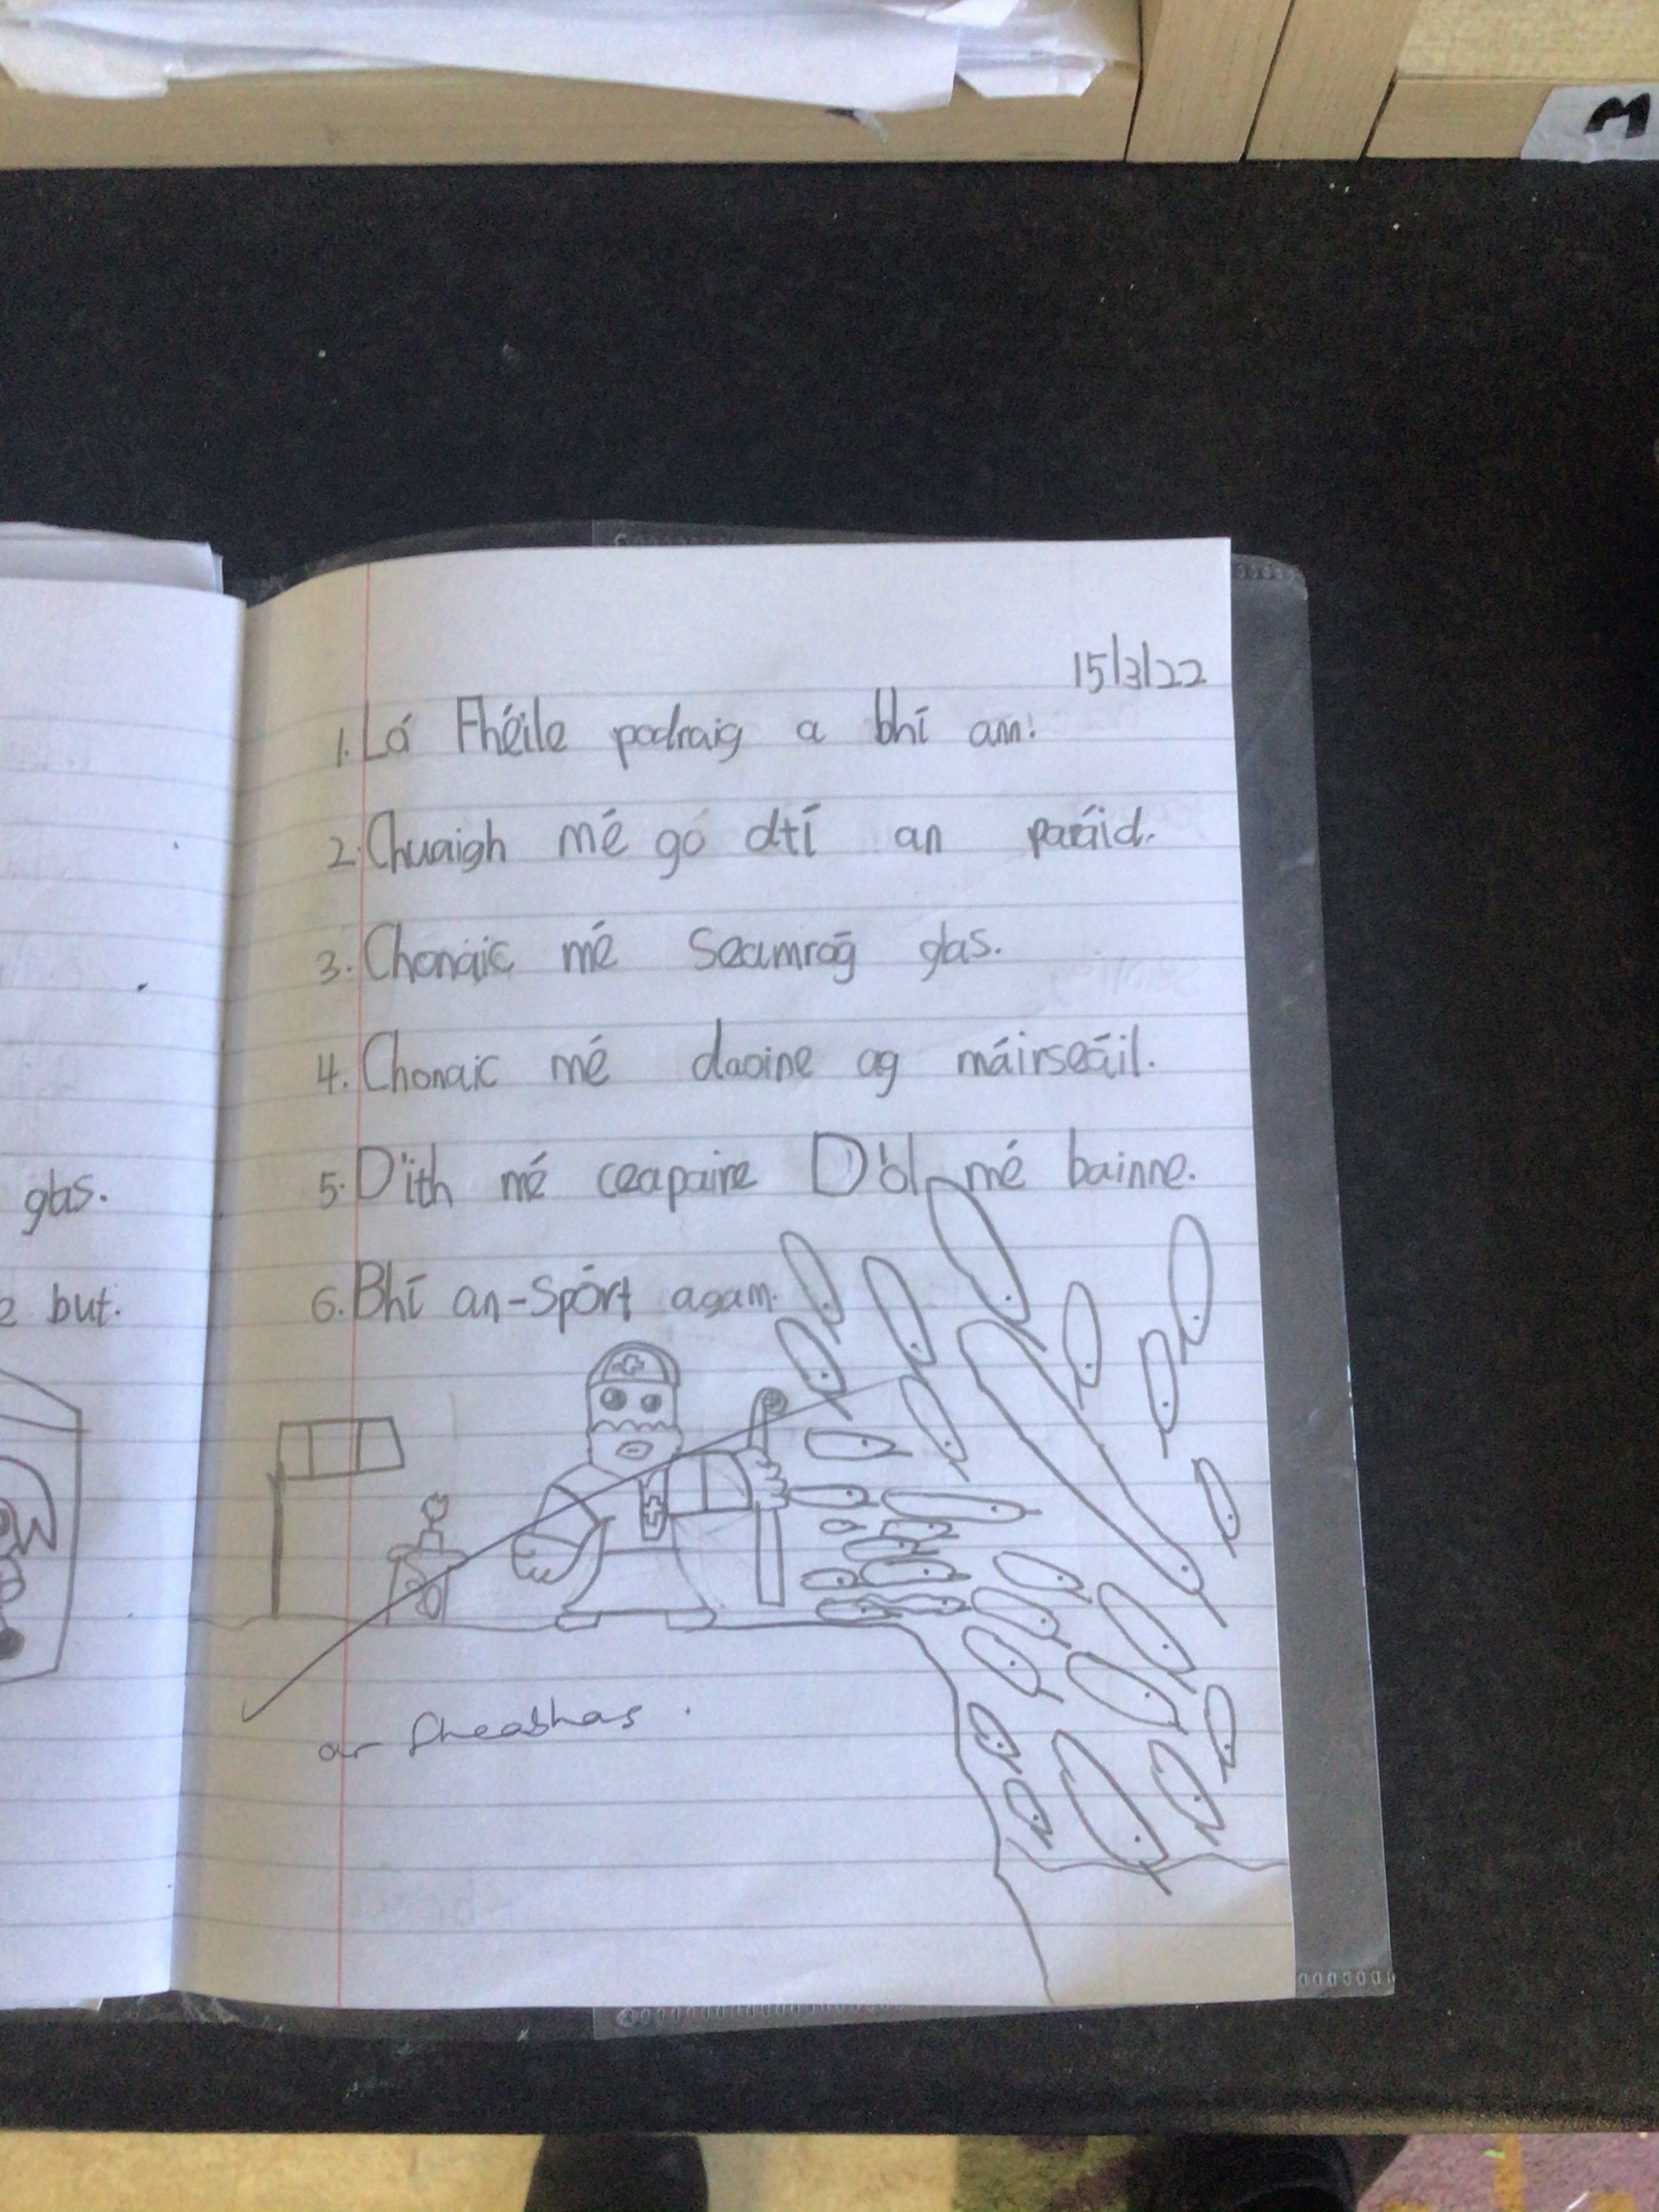 M
glas.
but.
15/3/22
1. Lá Fhéile padraig a bhí ann.
2. Chuaigh mé gó dtí an paráid.
3. Chonaic mé Seamróg glas.
4. Chonaic mé daoine ag máirseáil.
5. D'ith mé ceapaire D'ól mé bainne.
6. Bhí an-Spórt agam.
ar fheabhas.